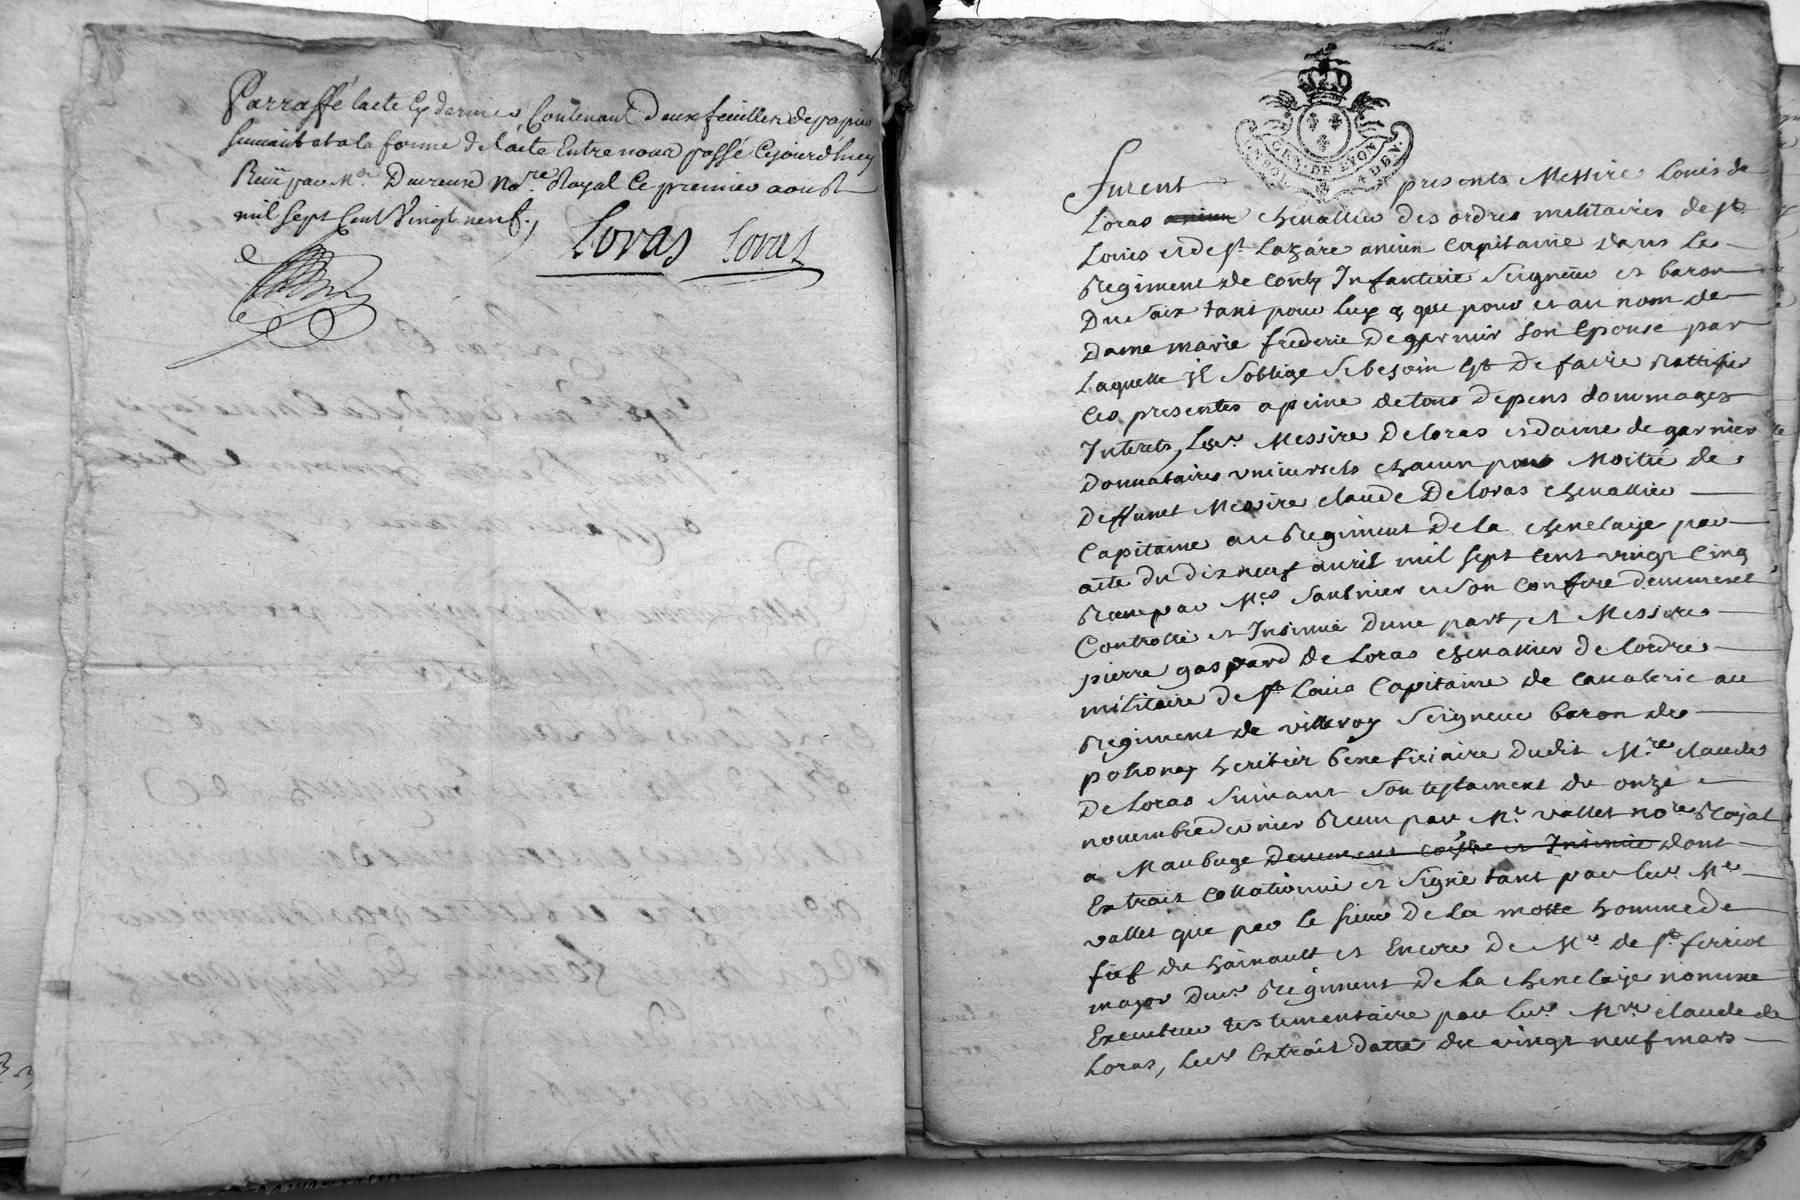 Parraffé lacte Cy dernier Contenant Deux feuillets de papier
suivant et a la forme de lacte Entre nous passé Cejourdhuy
Reçu par Me Ducreux nore Royal le premier aoust
mil sept Cent Vingt neuf.
Loras Loras
GEN. DE LYON
Furent presents Messire Louis de
Loras chevallier des ordres militaires de st
Louis et de st Lazare ancien capitaine dans le
Regiment de Conty Infanterie Seigneur et baron
Du saix tant pour luy que pour et au nom de
Dame marie frederic De garnier son Epouse par
Laquelle Il soblige se besoin est De faire Rattifier
Ces presentes a peine de tous depens dommages
Interets, Lesd. Messire De loras et dame de garnier
Donnataires universels chacun pour Moitié de
Deffunct Messire claude De loras chevallier
Capitaine au Regiment de la chenelaye par
acte du dix neuf avril mil sept cent vingt cinq
Receu par Mes saulnier et son confrere deuement
Controllé et Insinué dune part, et Messire
pierre gaspard de Loras chevallier de lordre
militaire de st Louis Capitaine de cavalerie au
Regiment de villeroy Seigneur baron de
polionay heritier beneficiaire dudit Mre claude
De loras suivant son testament du onze
novembre dernier Receu par Me vallet nore Royal
a Maubuge deuement collé et Insinué dont
Extrait collationné et signé tant par led. Me
vallet que par le sieur De la motte homme de
fief du hainault et Encore de Mr de st ferriol
major dud. Regiment De la chenelaye nommé
Executeur testementaire par led. Mre claude de
Loras, led. Extrait datté du vingt neuf mars